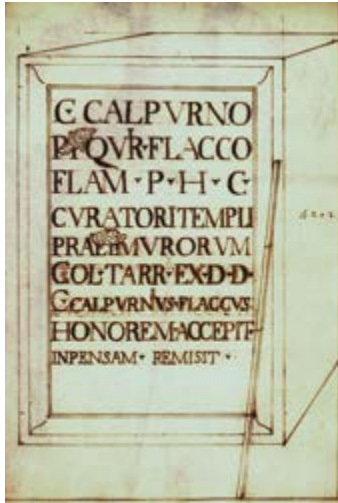 C CALPVRNO
P F QVIR·FLACCO
FLAM · P · H · C
CVRATORI TEMPLI
PRAEF MVRORVM
COL·TARR·EX·D·D·
C CALPVRNIVS·FLACCVS
HONOREM·ACCEPIT
INPENSAM· REMISIT ·
4202